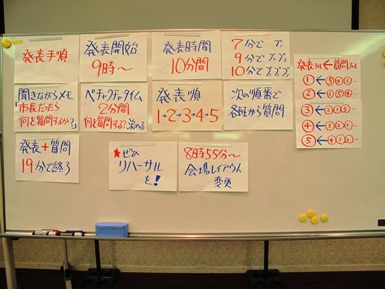 発表手順
発表開始
9時〜
発表時間
10分間
7分でブ
9分でブブ
10分でブブブ
聞きながらメモ
「市長だったら
何を質問するか?」
ペチャクチャタイム
2分間
何を質問する?決める
発表順
1→2→3→4→5
次の順番で
各班から質問
発表
質問
1←⑤④①
2←①⑤④
3←②①⑤
4←③②①
5←④③②
発表+質問
19分で終了
★ぜひ
リハーサル
を!
8時55分〜
会場レイアウト
変更